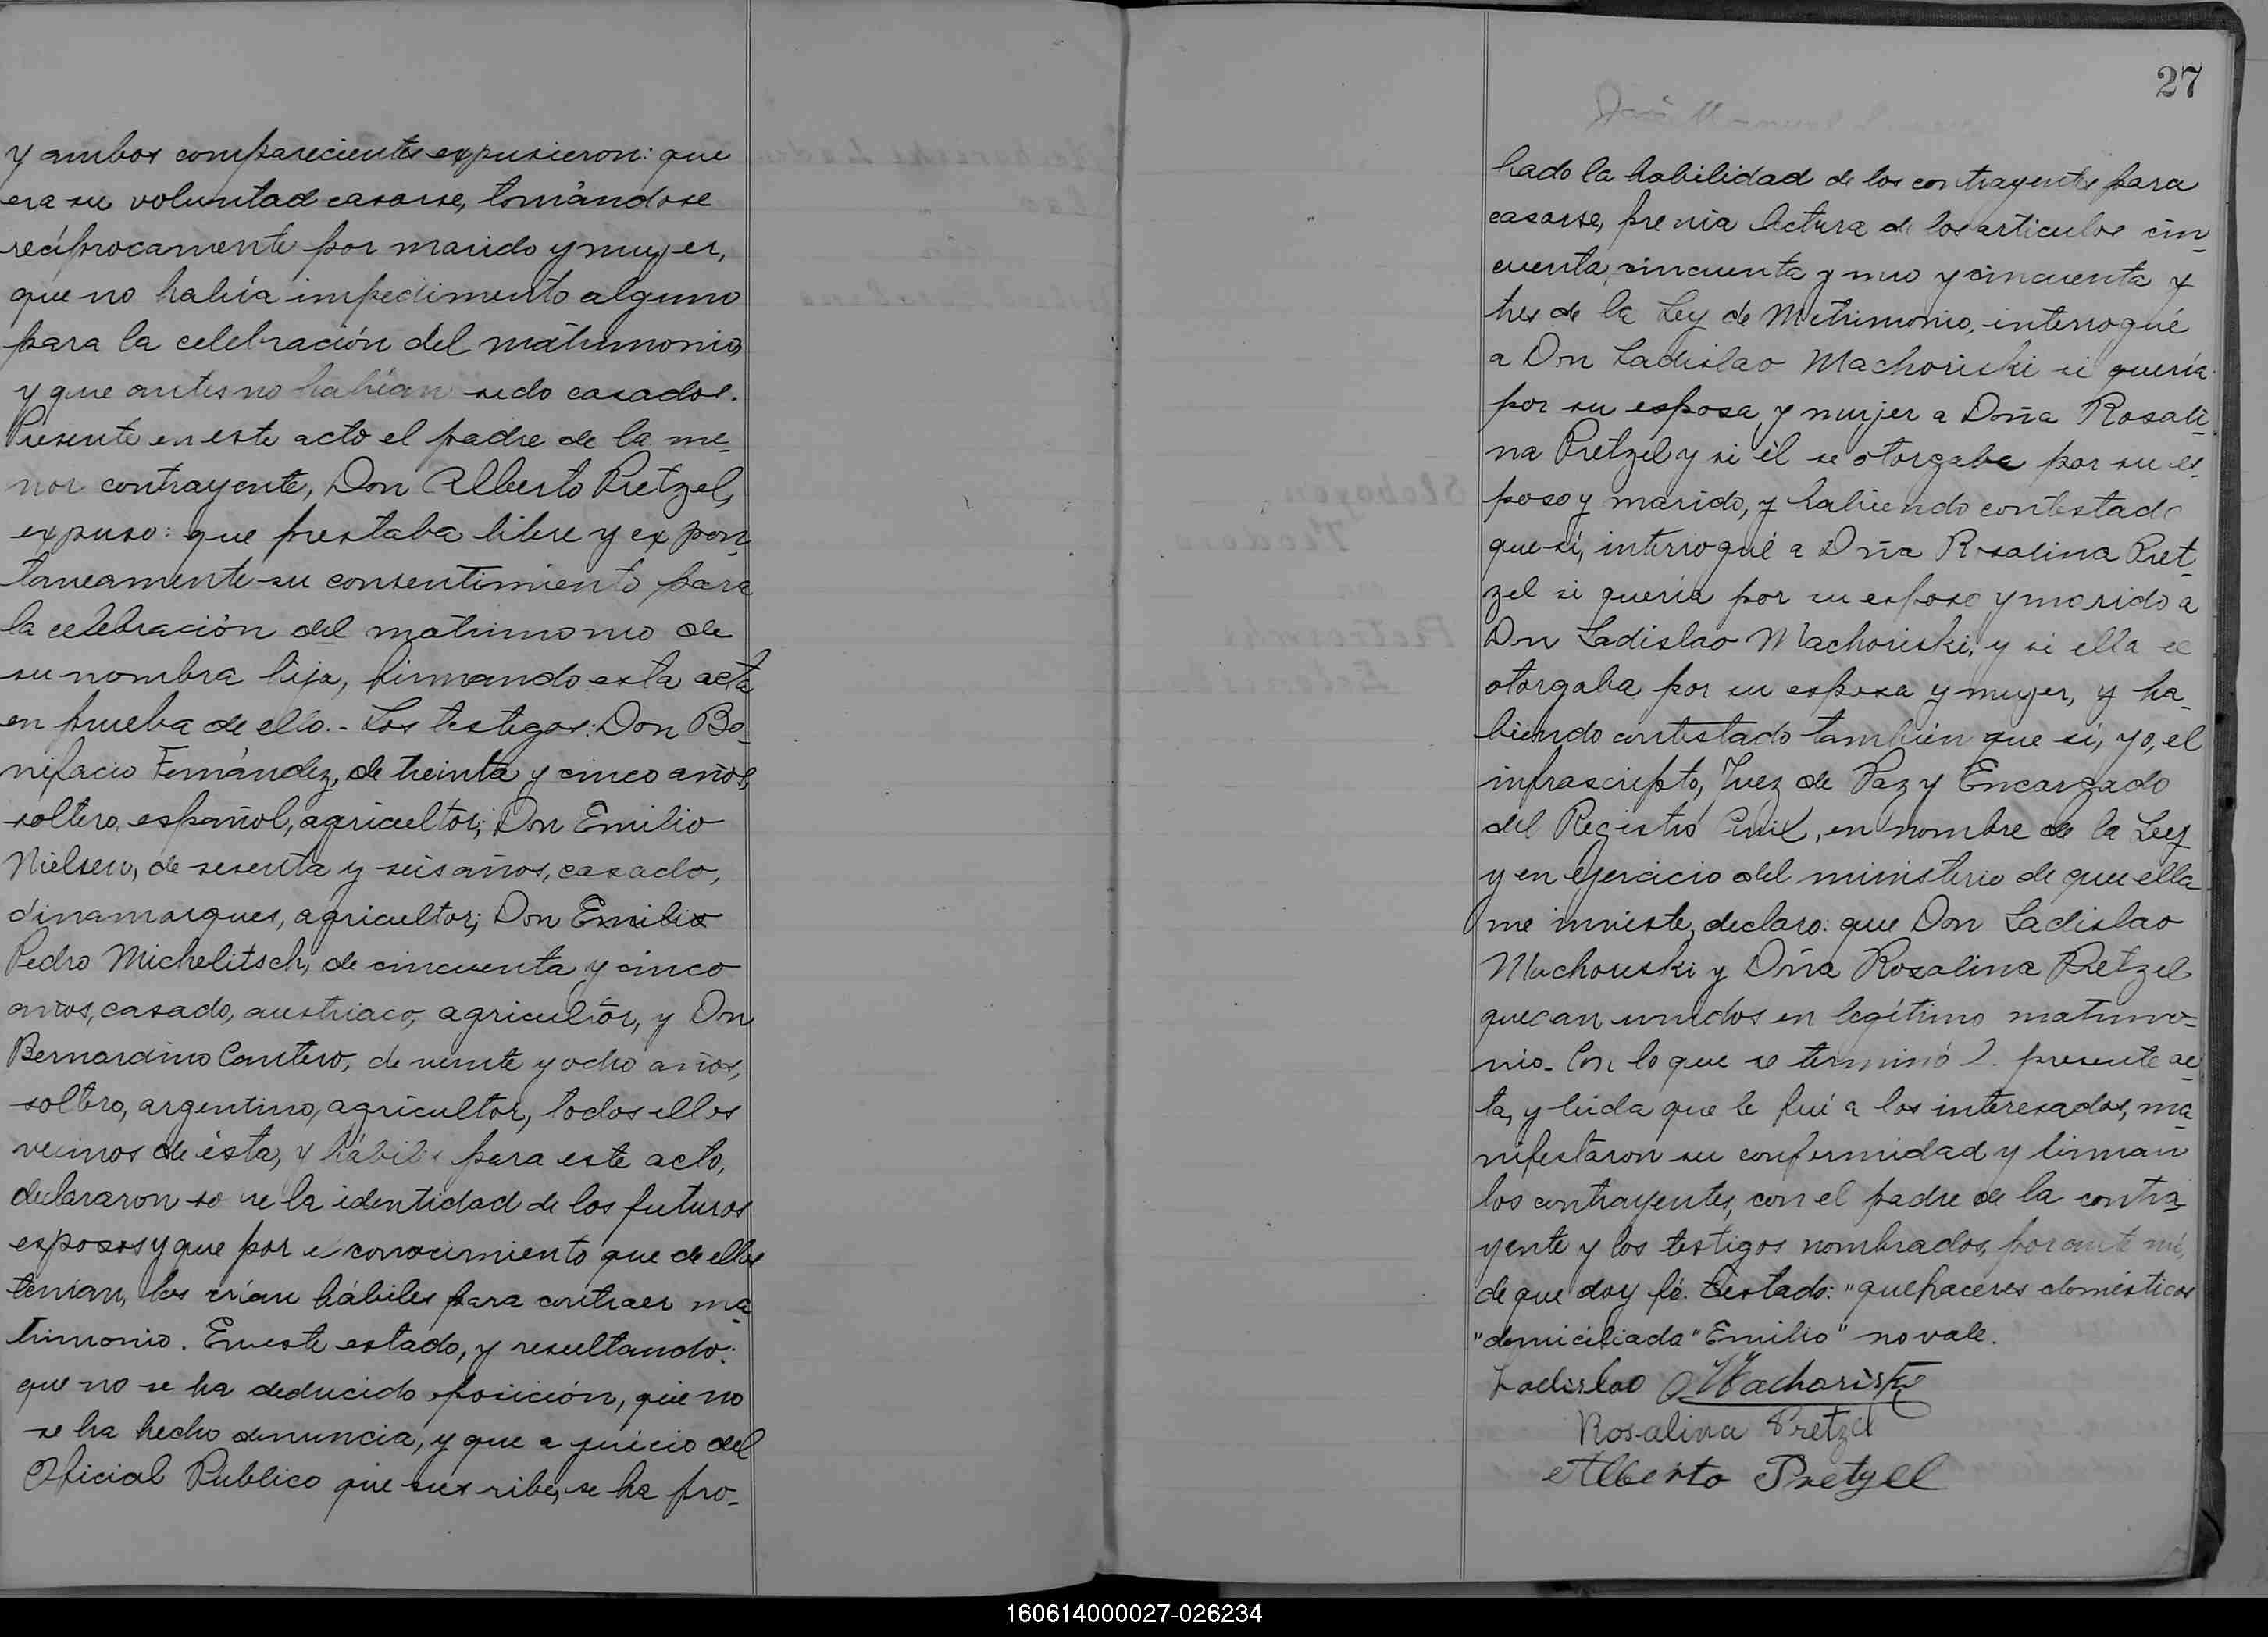 y ambos comparecientes expusieron: que
era su voluntad casarse, tomándose
recíprocamente por marido y mujer,
que no había impedimento alguno
para la celebración del matrimonio
y que antes no habían sido casados.
Presente en este acto el padre de la me-
nor contrayente, Don Alberto Pretzel,
expuso: que prestaba libre y expon-
taneamente su consentimiento para
la celebración del matrimonio de
su nombra hija, firmando esta acta
en prueba de ello.- Los testigos: Don Bo-
nifacio Fernández, de treinta y cinco años,
soltero, español, agricultor; Don Emilio
Nielsen, de sesenta y seis años, casado,
dinamarques, agricultor; Don Emilio
Pedro Michelitsch, de cincuenta y cinco
años, casado, austriaco, agricultor, y Don
Bernardino Cantero, de veinte y ocho años,
soltero, argentino, agricultor, todos ellos
vecinos de ésta, y hábiles para este acto,
declararon so re la identidad de los futuros
esposos y que por el conocimiento que de ellos
tenían, los crían hábiles para contraer ma-
trimonio. En este estado, y resultando:
que no se ha deducido oposición, que no
se ha hecho denuncia, y que a juicio del
Oficial Público que suscribe, se ha pro-
27
bado la habilidad de los contrayentes para
casarse, previa lectura de los articulos cin-
cuenta, cincuenta y uno y cincuenta y
tres de la Ley de Matrimonio, interrogué
a Don Ladislao Machoriski si quería
por su esposa y mujer a Doña Rosali-
na Pretzel y si él se otorgaba por su es-
poso y marido, y habiendo contestado
que sí, interrogué a Dña Rosalina Pret-
zel si quería por su esposo y marido a
Don Ladislao Machoriski, y si ella se
otorgaba por su esposa y mujer, y ha-
biendo contestado también que sí, yo, el
infrascripto, Juez de Paz y Encargado
del Registro Civil, en nombre de la Ley
y en ejercicio del ministerio de que ella
me inviste, declaro: que Don Ladislao
Machouski y Dña Rosalina Pretzel
quedan unidos en legítimo matrimo-
nio. Con lo que se terminó la presente ac-
ta, y leída que le fué a los interesados, ma-
nifestaron su conformidad y firman
los contrayentes, con el padre de la contra-
yente y los testigos nombrados, por ante mí,
de que doy fé. Testado: "quehaceres domésticos
"domiciliada" Emilio" no vale.
Ladislao Machoriski
Rosalina Pretzel
Alberto Pretzel
160614000027-026234